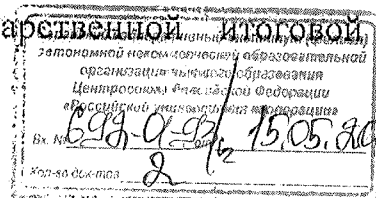 арственной итоговой
автономной некоммерческой образовательной
организации высшего образования
Центросоюза Российской Федерации
«Российский университет кооперации»
Вх. № 692-01-93/ 15.05.20
Кол-во док-тов 2